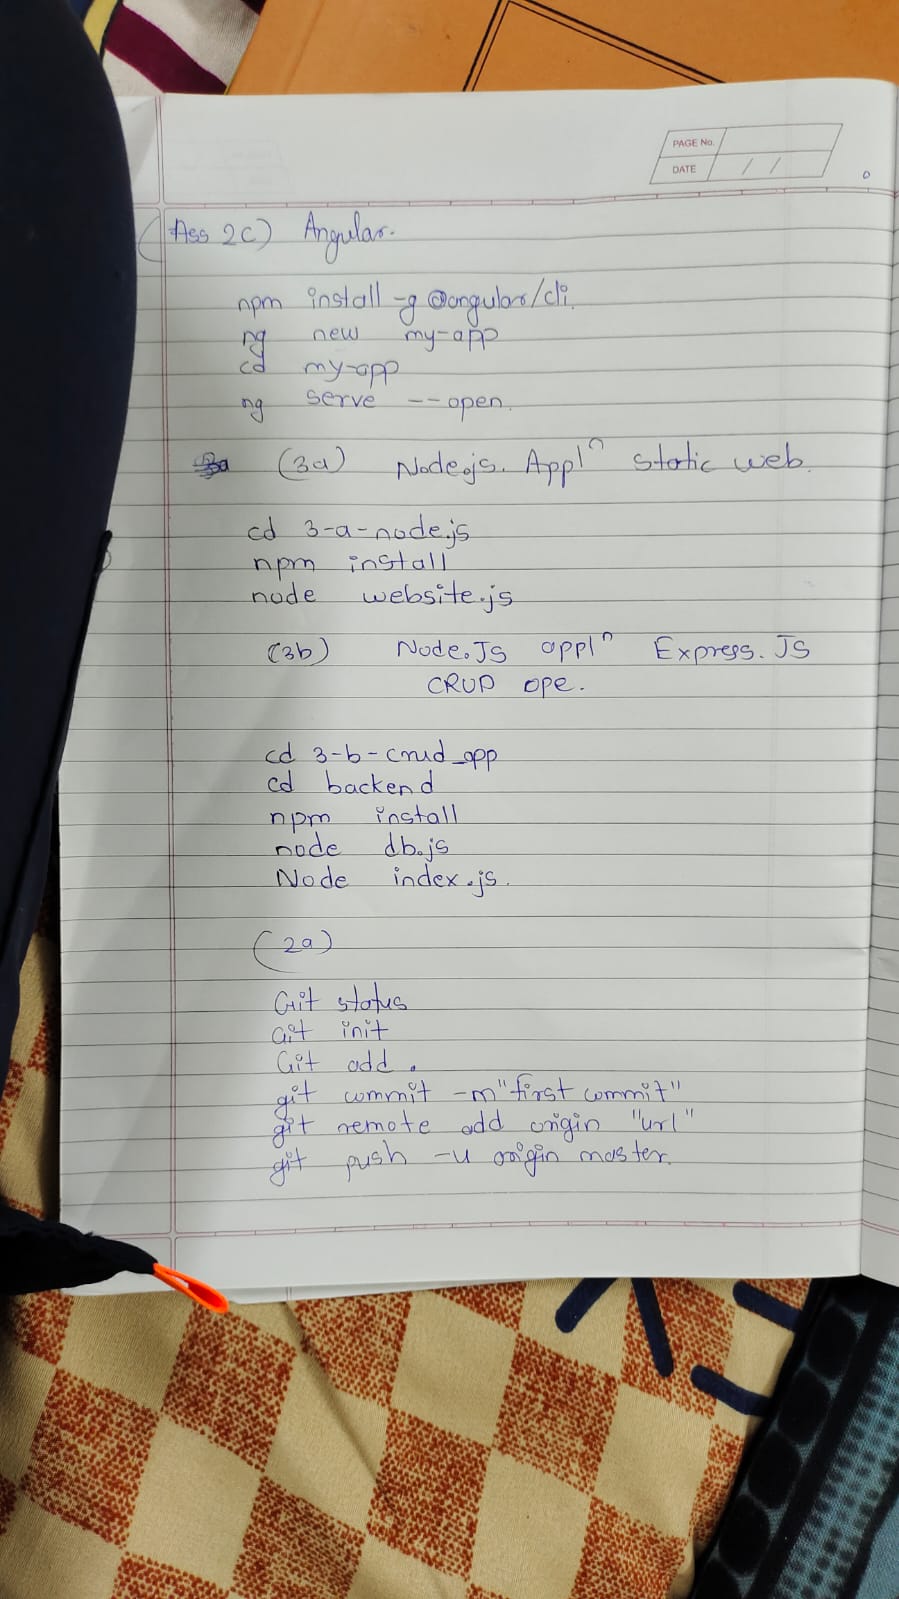 PAGE No.
DATE / /
Ass 2c) Angular.
npm install -g @angular/cli.
ng new my-app
cd my-app
ng serve --open.
(3a) Node.js. Applⁿ static web.
cd 3-a-node.js
npm install
node website.js
(3b) Node.JS applⁿ Express.JS
CRUD ope.
cd 3-b-crud_app
cd backend
npm install
node db.js
Node index.js.
(2a)
Git status
Git init
Git add .
git commit -m "first commit"
git remote add origin "url"
git push -u origin master.